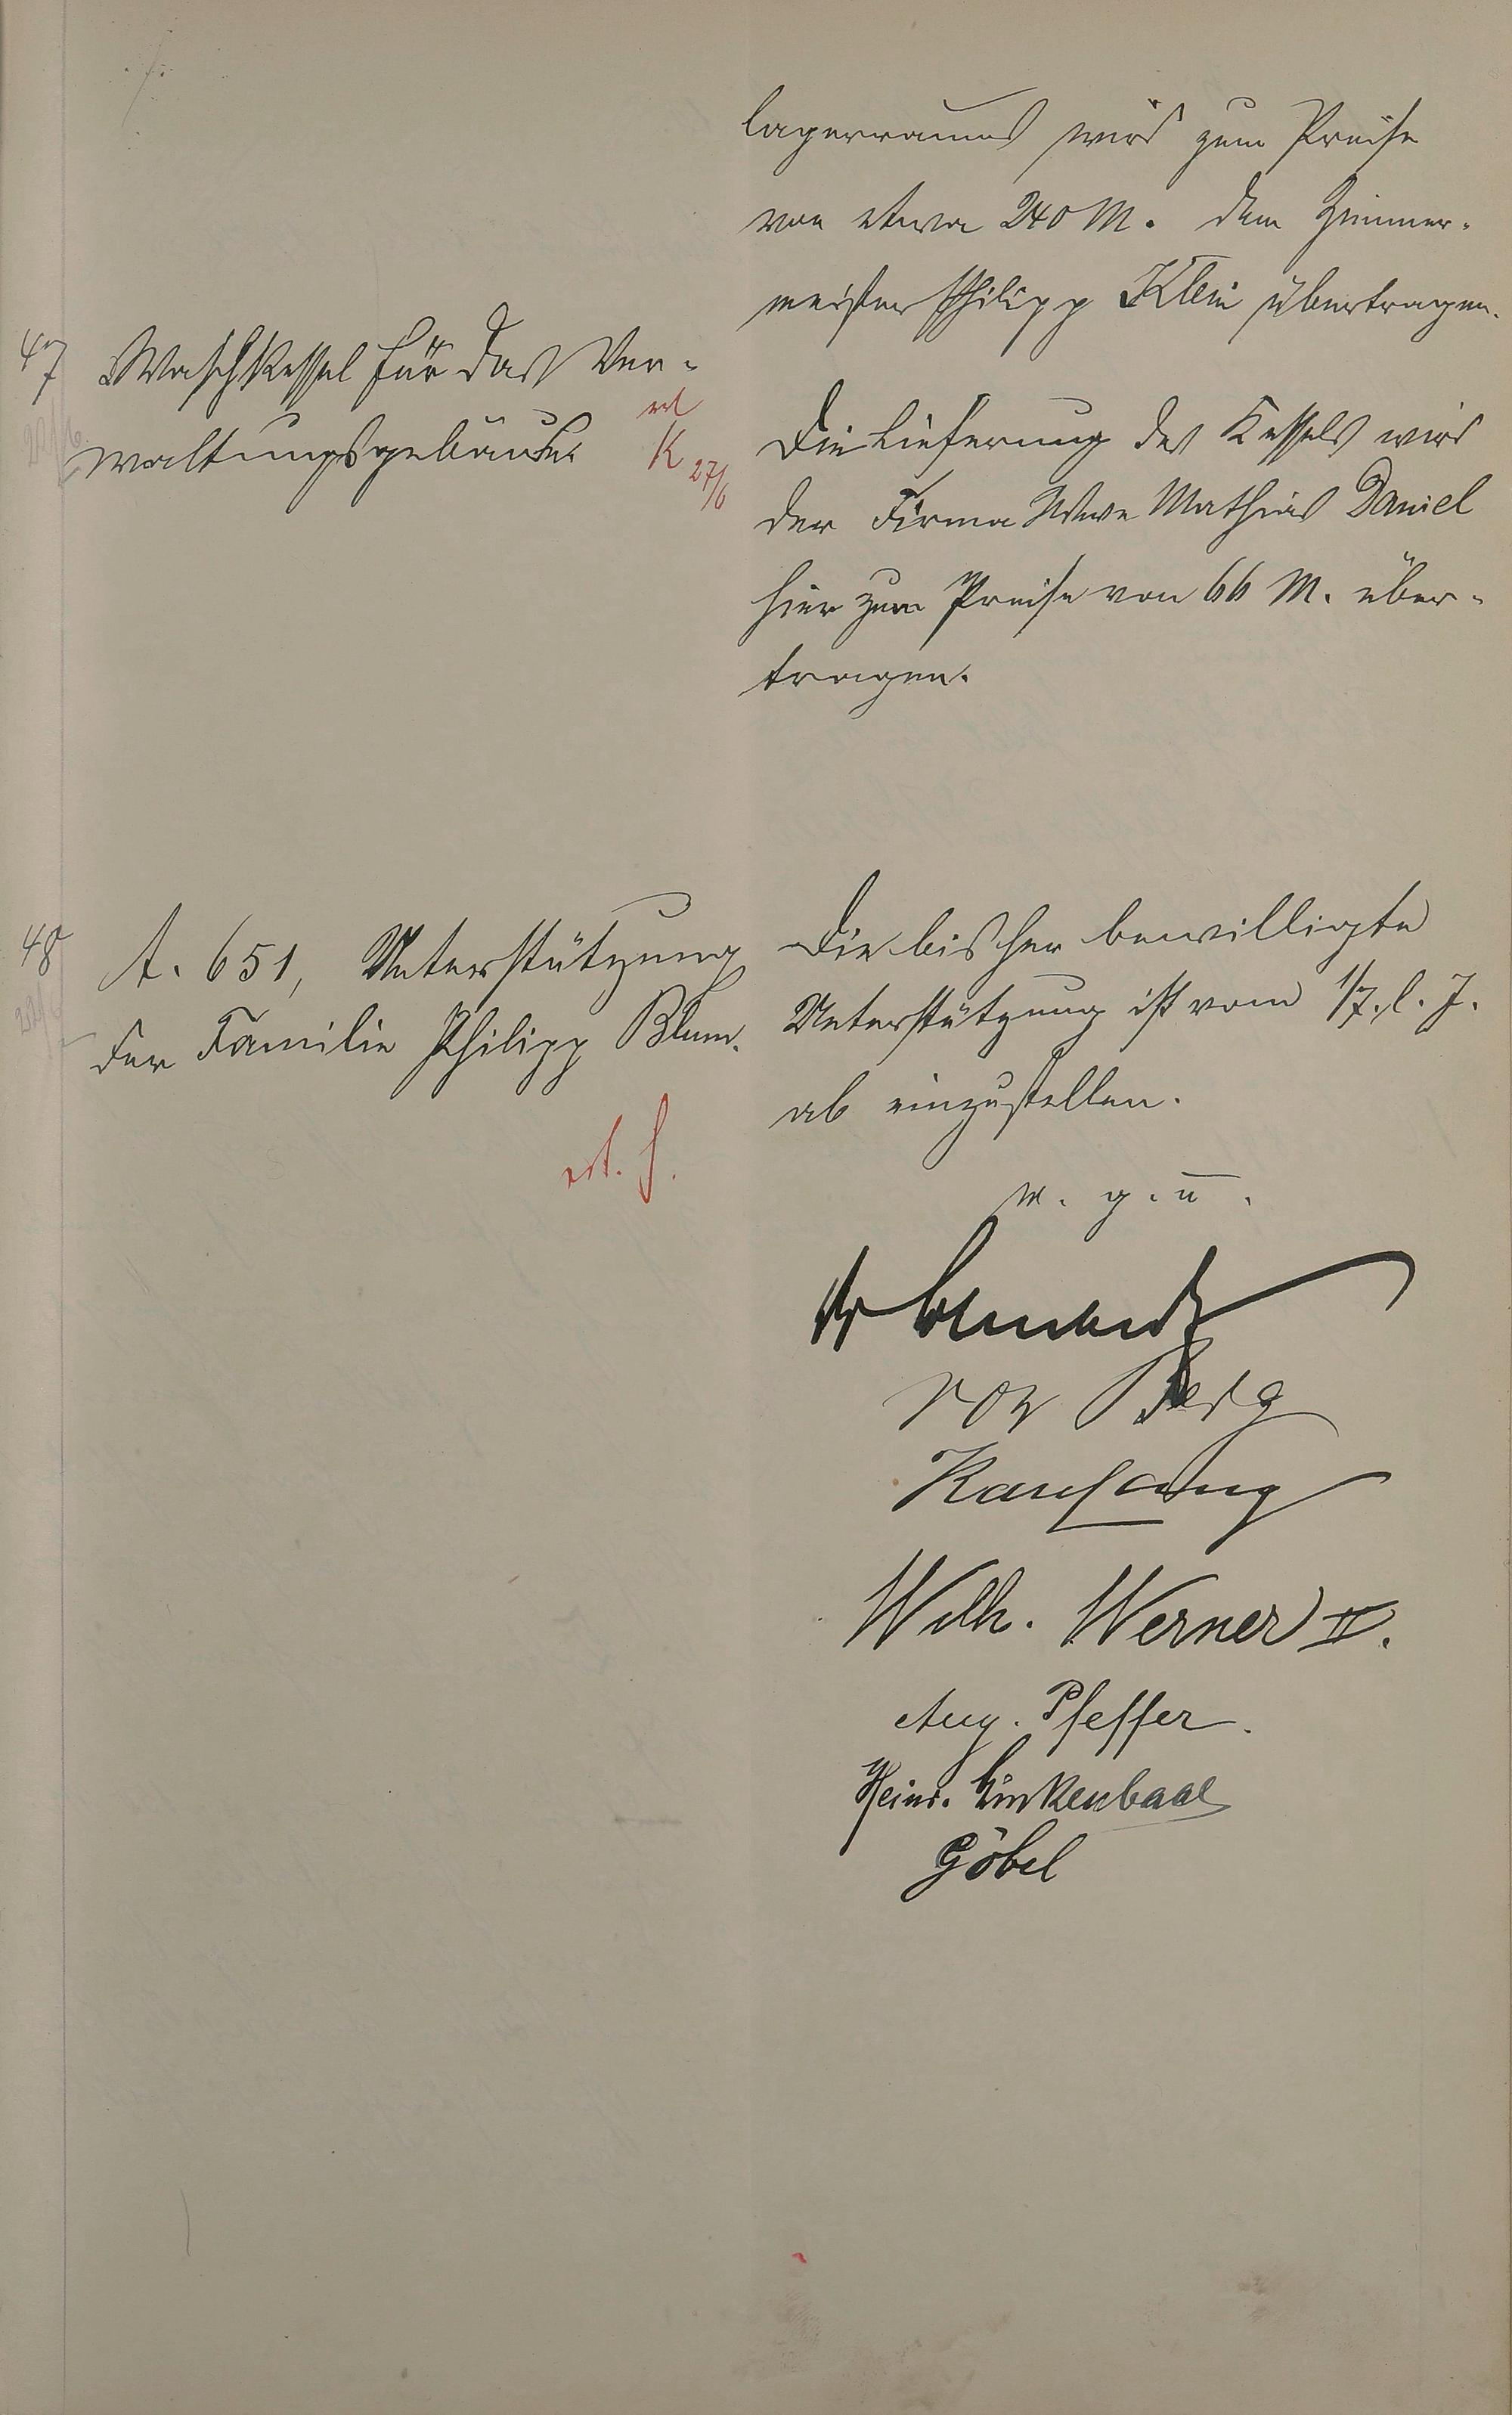 lagerraumes wird zum Preise
von etwa 240 M. dem Zimmer-
meister Philipp Klein übertragen.
47 Waschkessel für das Ver-
waltungsgebäude.
K 27/6
Die Lieferung des Kessels wird
der Firma Wwe Mathias Daniel
hier zum Preise von 66 M. über-
tragen.
48 A. 651, Unterstützung
der Familie Philipp Blum.
Die bisher bewilligte
Unterstützung ist vom 1/7. l. J.
ab einzustellen.
v. g. u.
von Berg
Wilh. Werner II.
Aug. Pfeffer.
Heinr. Linkenbach
Göbel